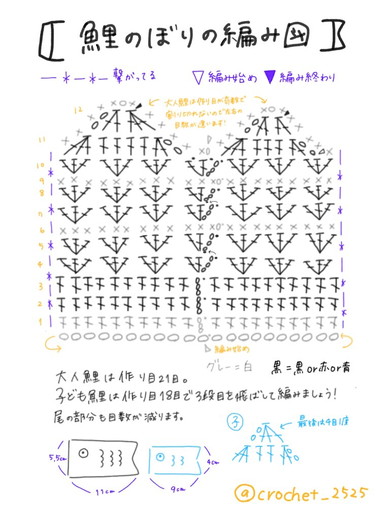 【鯉のぼりの編み図】
ー*ー*ー 繋がってる
▽編み始め ▼編み終わり
大人鯉は作り目が奇数で
12
11
10
9
8
7
6
5
4
3
2
1
編み始め
グレー=白 黒=黒or赤or青
大人鯉は作り目21目。
子ども鯉は作り目18目で3段目を飛ばして編みましょう!
尾の部分も目数が減ります。
子
最後は4目1度
5.5cm
11cm
4cm
9cm
@crochet_2525